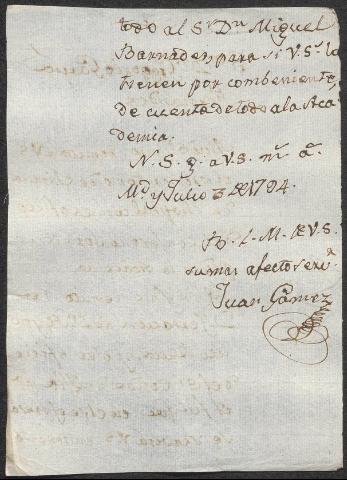 todo al Sr. Dn. Miguel
Barnades para si V.S. lo
tienen por combeniente,
de cuenta de todo a la Aca
demia.
N. S. g. a V.S. ms. as.
Md. y Julio 3 de 1794.
B. L. M. de V.S.
su mas afecto servr.
Juan Gamez